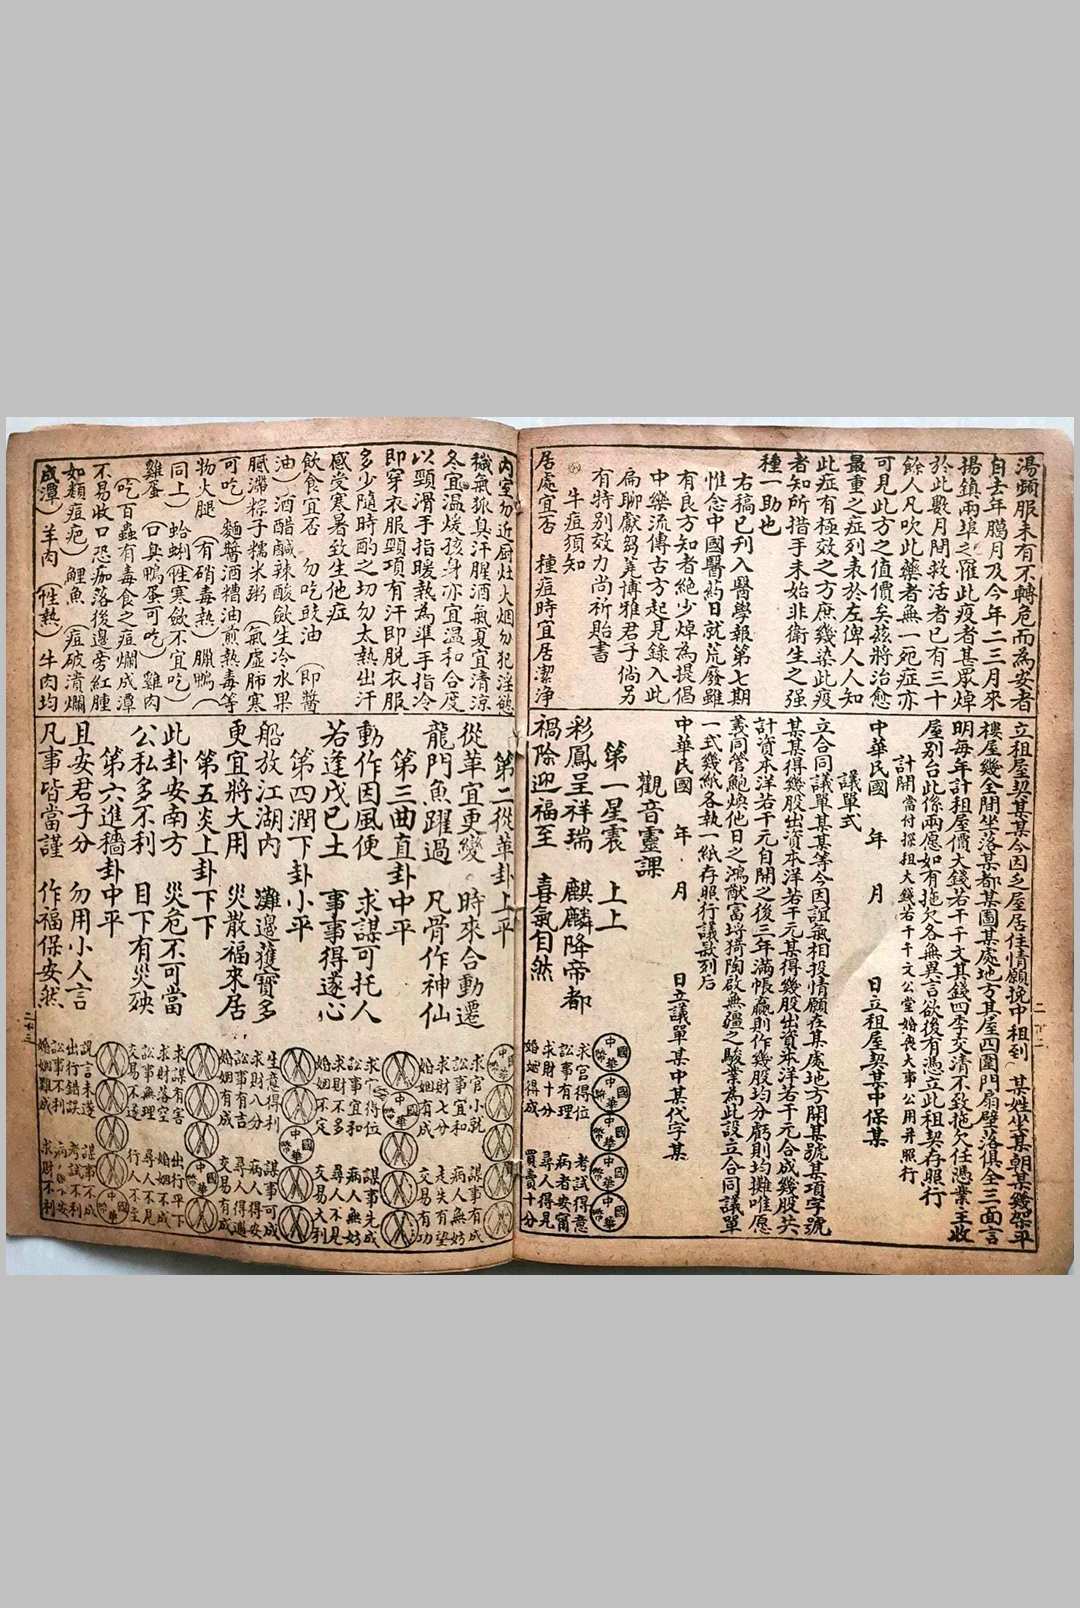 湯頻服未有不轉危而為安者
自去年臘月及今年二三月來
揚鎮兩埠之罹此疫者甚眾焯
於此數月間救活者已有三十
餘人凡吹此藥者無一死症亦
可見此方之值價矣茲將治愈
最重之症列表於左俾人人知
此症有極效之方庶幾染此疫
者知所措手未始非衛生之强
種一助也
右稿已刋入醫學報第七期
惟念中國醫葯日就荒廢雖
有良方知者絶少焯為提倡
中藥流傳古方起見錄入此
扁聊獻芻蕘博雅君子倘另
有特别效力尚祈貽書
牛痘須知
居處宜否 種痘時宜居潔淨
立租屋契某某今因乏屋居住情願挽中租到 某姓坐某朝某幾架平
樓屋幾全間坐落某都某圖某處地方其屋四圍門扇壁落俱全三面言
明每年計租屋價大錢若干千文其錢四季交清不致拖欠任憑業主收
屋别召此係兩愿如有拖欠各無異言欲後有憑立此租契存照行
計開當付探租大錢若干千文公堂婚喪大事公用并照行
中華民國 年 月 日立租屋契某中保某
議單式
立合同議單某某等今因誼氣相投情願在某處地方開某號某項字號
某某得幾股出資本洋若干元某得幾股出資本洋若干元合成幾股共
計資本洋若干元自開之後三年滿帳贏則作幾股均分虧則均攤唯愿
義同管鮑煥他日之鴻猷富埒猗陶啟無疆之駿業為此設立合同議單
一式幾紙各執一紙存照行議獻刻后
中華民國 年 月 日立議單某中某代字某
觀音靈課
第一星震 上上
彩鳳呈祥瑞 麒麟降帝都
禍除迎福至 喜氣自然
中華國幣
中華國幣
中華國幣
中華國幣
中華國幣
求官得位 考試得意
訟事有理 病者安甯
求財十分 尋人得見
婚姻得成 買賣十分
內室勿近厨灶火烟勿犯淫慾
穢氣狐臭汗腥酒氣夏宜清涼
冬宜温煖孩身亦宜温和合度
以頸滑手指暖熱為準手指冷
即穿衣服頸項有汗即脱衣服
多少隨時酌之切勿太熱出汗
感受寒暑致生他症
飲食宜否 勿吃豉油(即醬
油)酒醋鹹辣酸歛生冷水果
膩滯粽子糯米粥(氣虛肺寒
可吃)麵醬酒糟油煎熱毒等
物火腿(有硝毒熱)臘鴨(
同上)蛤蜊(性寒歛不宜吃)
雞蛋 口臭鴨蛋可吃)雞肉
(吃百蟲有毒食之痘爛成潭
不易收口恐痂落後邊旁紅腫
如類痘疤)鯉魚(痘破潰爛
成潭)羊肉(性熱)牛肉均
第二從革卦上平
從革宜更變 時來合動遷
龍門魚躍過 凡骨作神仙
第三曲直卦中平
動作因風便 求謀可托人
若逢戊己土 事事得遂心
第四潤下卦小平
船放江湖內 灘邊獲寶多
更宜將大用 災散福來居
第五炎上卦下下
此卦安南方 災危不可當
公私多不利 目下有災殃
第六進穡卦中平
且安君子分 勿用小人言
凡事皆當謹 作福保安然
求官小就 謀事有成
訟事宜和 病人無妨
求財七分 走失有望
婚姻有成 交易有功
求官得位 謀事先成
訟事宜和 病人無妨
求財不多 尋人不見
婚姻不定 交易大利
生意得利 謀事可成
求財八分 病人得安
訟事有吉 尋人得遇
婚姻有成 交易有成
求謀有害 出行平下
求財落空 婚姻不成
訟事無理 尋人不見
交易不遂 行人不至
説言未遂 謀事不成
出行錯誤 考試不利
訟事不利
婚姻難成 求財不利